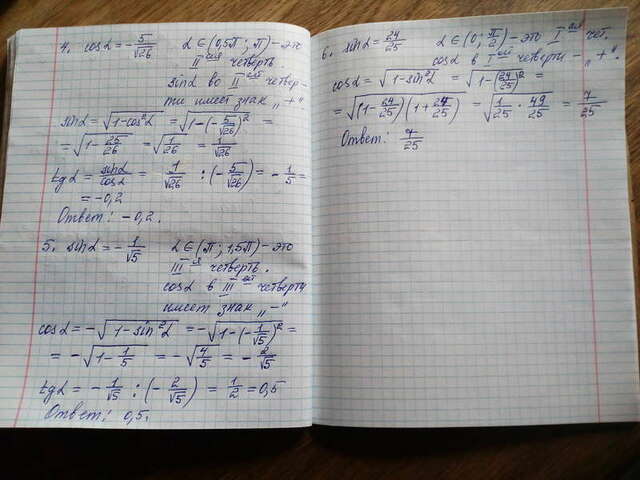 4. cosα = -5/√26 α ∈ (0,5π; π) - это
II ая четверть.
sinα во II ой четвер-
ти имеет знак „+"
sinα = √(1-cos²α) = √(1-(-5/√26)²) =
= √(1-25/26) = √(1/26) = 1/√26
tgα = sinα/cosα = 1/√26 : (-5/√26) = -1/5 =
= -0,2
Ответ: -0,2.
5. sinα = -1/√5 α ∈ (π; 1,5π) - это
III ая четверть.
cosα в III ой четверти
имеет знак „-"
cosα = -√(1-sin²α) = -√(1-(-1/√5)²) =
= -√(1-1/5) = -√(4/5) = -2/√5
tgα = -1/√5 : (-2/√5) = 1/2 = 0,5
Ответ: 0,5.
6. sinα = 24/25 α ∈ (0; π/2) - это I ая чет.
cosα в I ой четверти - „+".
cosα = √(1-sin²α) = √(1-(24/25)²) =
= √((1-24/25)(1+24/25)) = √(1/25 · 49/25) = 7/25
Ответ: 7/25